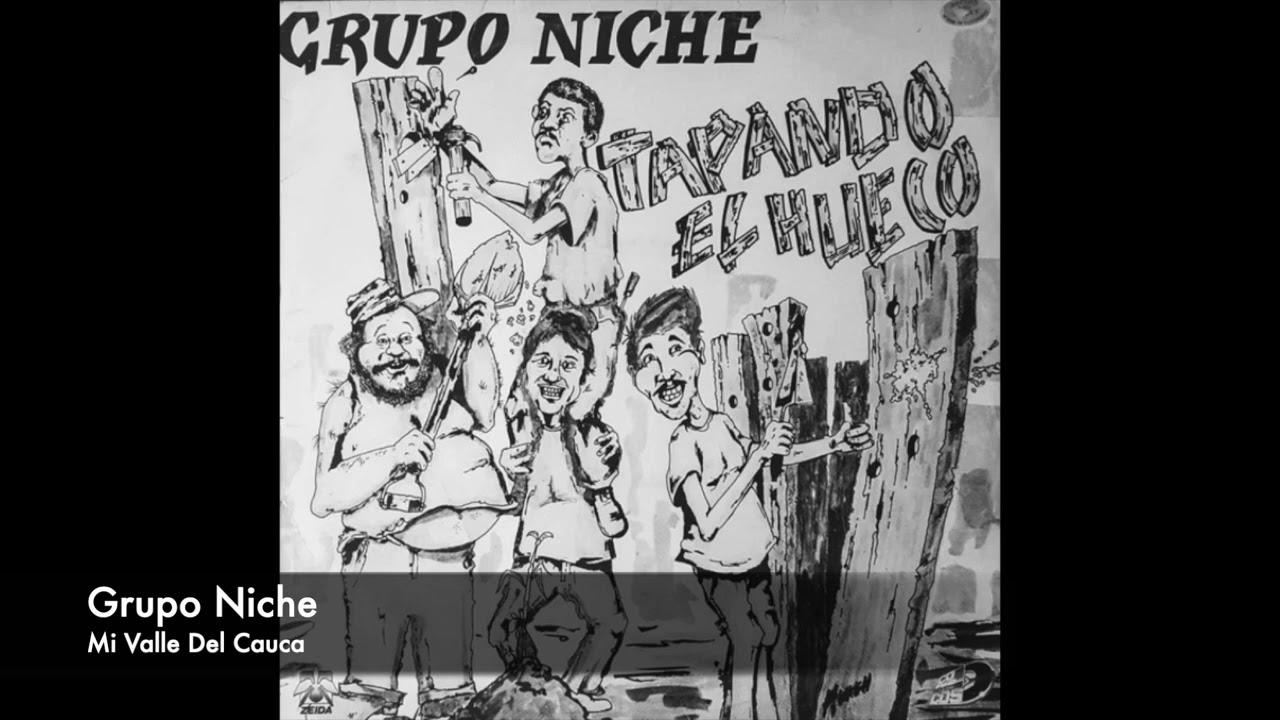 GRUPO NICHE
TAPANDO
EL HUECO
Grupo Niche
Mi Valle Del Cauca
ZEIDA